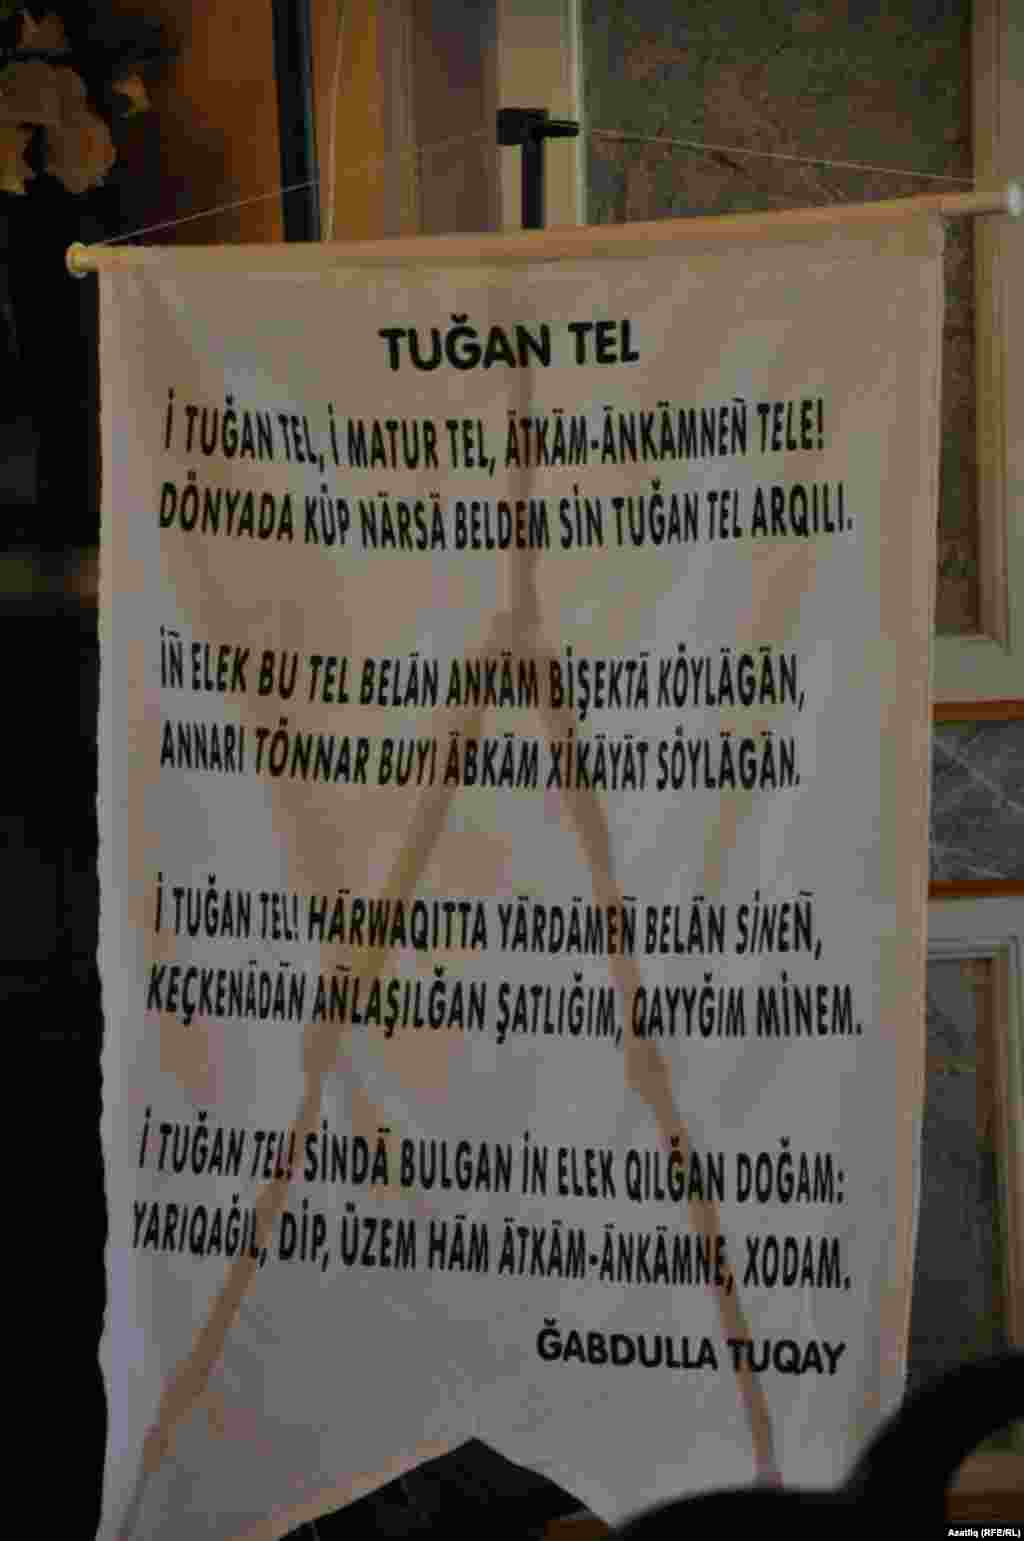 TUĞAN TEL
İ TUĞAN TEL, İ MATUR TEL, ÄTKÄM-ÄNKÄMNEÑ TELE!
DÖNYADA KÜP NÄRSÄ BELDEM SİN TUĞAN TEL ARQILI.
İÑ ELEK BU TEL BELÄN ANKÄM BİŞEKTÄ KÖYLÄGÄN,
ANNARI TÖNNAR BUYI ÄBKÄM XİKÄYÄT SÖYLÄGÄN.
İ TUĞAN TEL! HÄRWAQITTA YÄRDÄMEÑ BELÄN SİNEÑ,
KEÇKENÄDÄN AÑLAŞILĞAN ŞATLIĞIM, QAYYĞIM MİNEM.
İ TUĞAN TEL! SİNDÄ BULGAN İN ELEK QILĞAN DOĞAM:
YARIQAĞIL, DİP, ÜZEM HÄM ÄTKÄM-ÄNKÄMNE, XODAM.
ĞABDULLA TUQAY
Azatliq (RFE/RL)